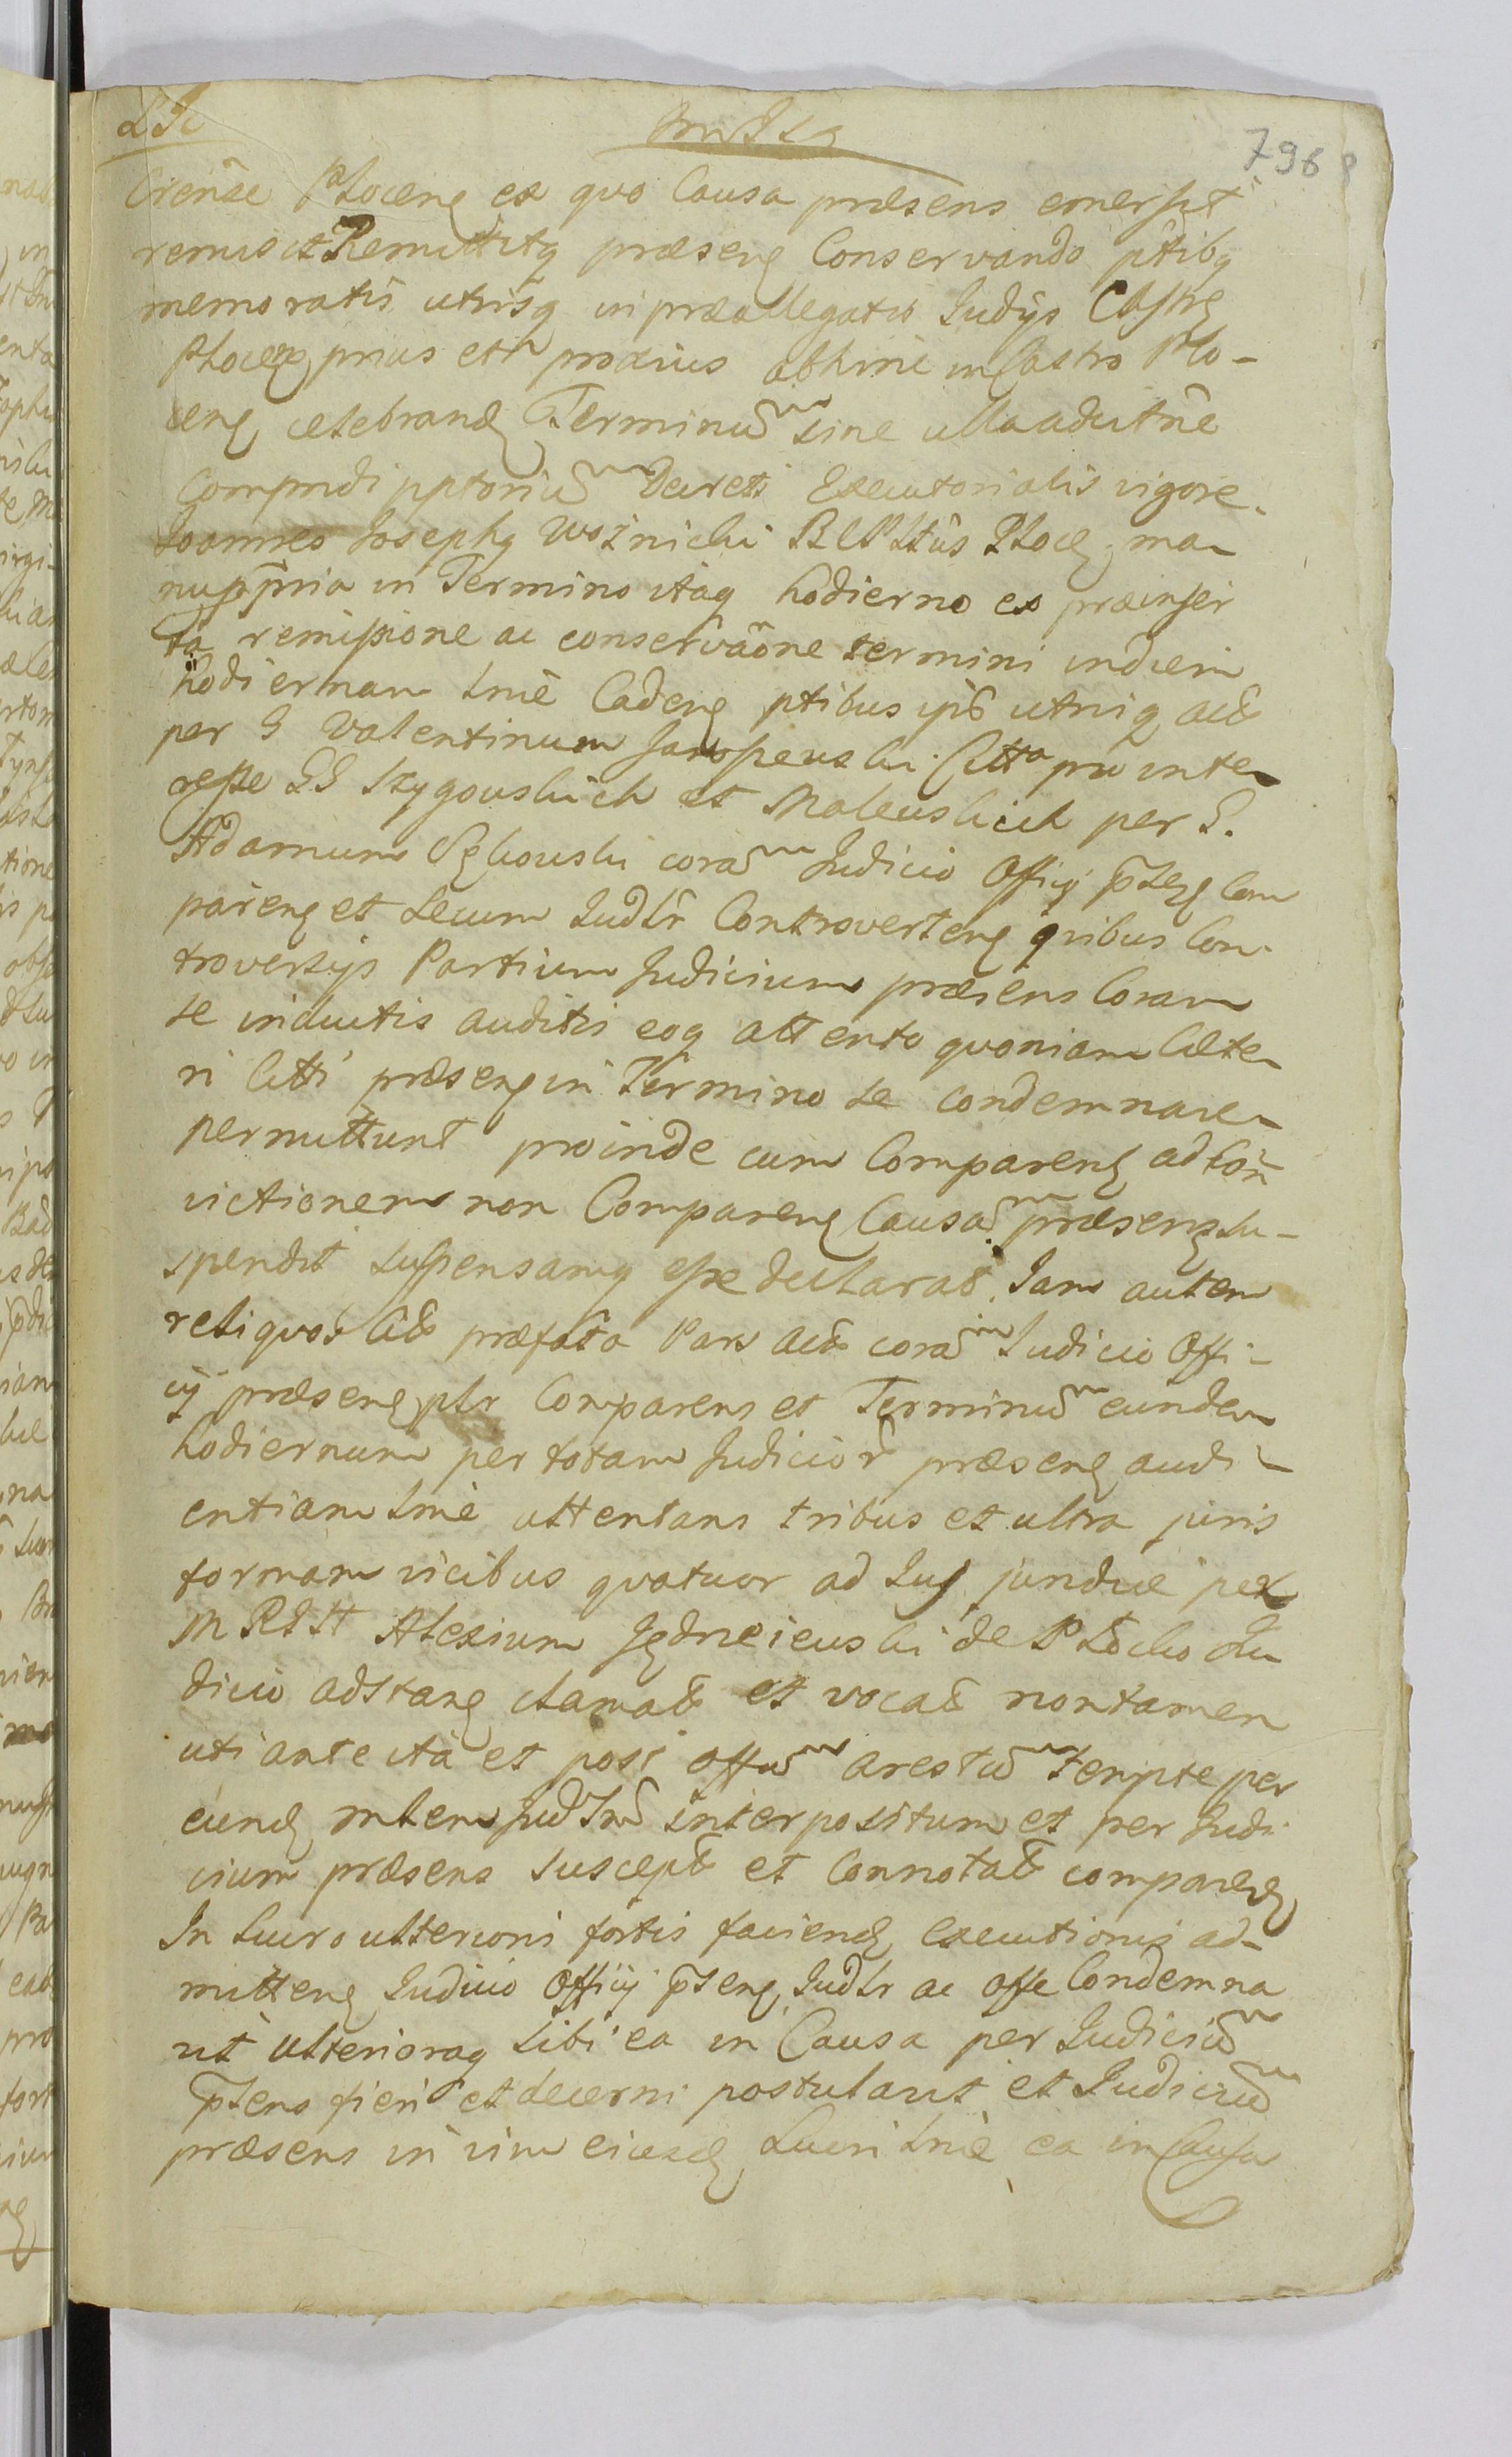 796
Crense Plocens ex quo Causa præsens emersit
remisit Remittitq præsens Conservando ptibq
memoratis utrisq in præallegatis Judÿs Castr
Plocen prius et proxius abhinc in Castro Plo-
cens celebrand Terminum sine ulla aducitne
Comprndi pptorium Decreti Executorialis vigore.
Joannes Josephq Woźnicki Ploc ma
nuppria in Termino itaq hodierno ex præinser
ta remissione ac conservaone termini in diem
hodiernam tme Cadens ptibus ipis utriq act
per G Valentinum Citta pro inte
resse GG Szygowskich et Malewskich per G.
Adamum coram Judicio Officÿ ptis Com
parens et secum Judlr Controvertens quibus Con
troversÿs Partium Judicium præsens Coram
se inductis auditis eoq attento quoniam Cæte
ri Citti præsens in Termino se condemnare
permittunt proinde cum Comparens ad Con
victionem non Comparens Causam præsens su-
spendit suspensamq esse declarat. Jam autem
reliquos Cit præfata Pars act coram Judicio Offi-
cÿ præsens pltr Comparens et Terminum eundem
hodiernum per totam Judicior præsens audi-
entiam tme attentans tribus et ultra juris
formam vicibus quatuor ad Jus jundue per
M Alexium Jędrzeiewski de Plocko Ju
dicio adstans clamat et vocat non tamen
uti ante ita et post offum arestum scripte per
eund mtem JudJrm interpositum et per Judi
cium præsens suscept et Connotat comparen
In lucro ulterioni fortis faciend executionis ad-
mittens Judicio Officÿ ptens Judlr ac offe Condemna
vit ulterioraq sibi ea in Causa per Judicium
ptens fieri et decerni postulavit et Judicium
præsens in vim eiusd Lucri tme ea in Causa